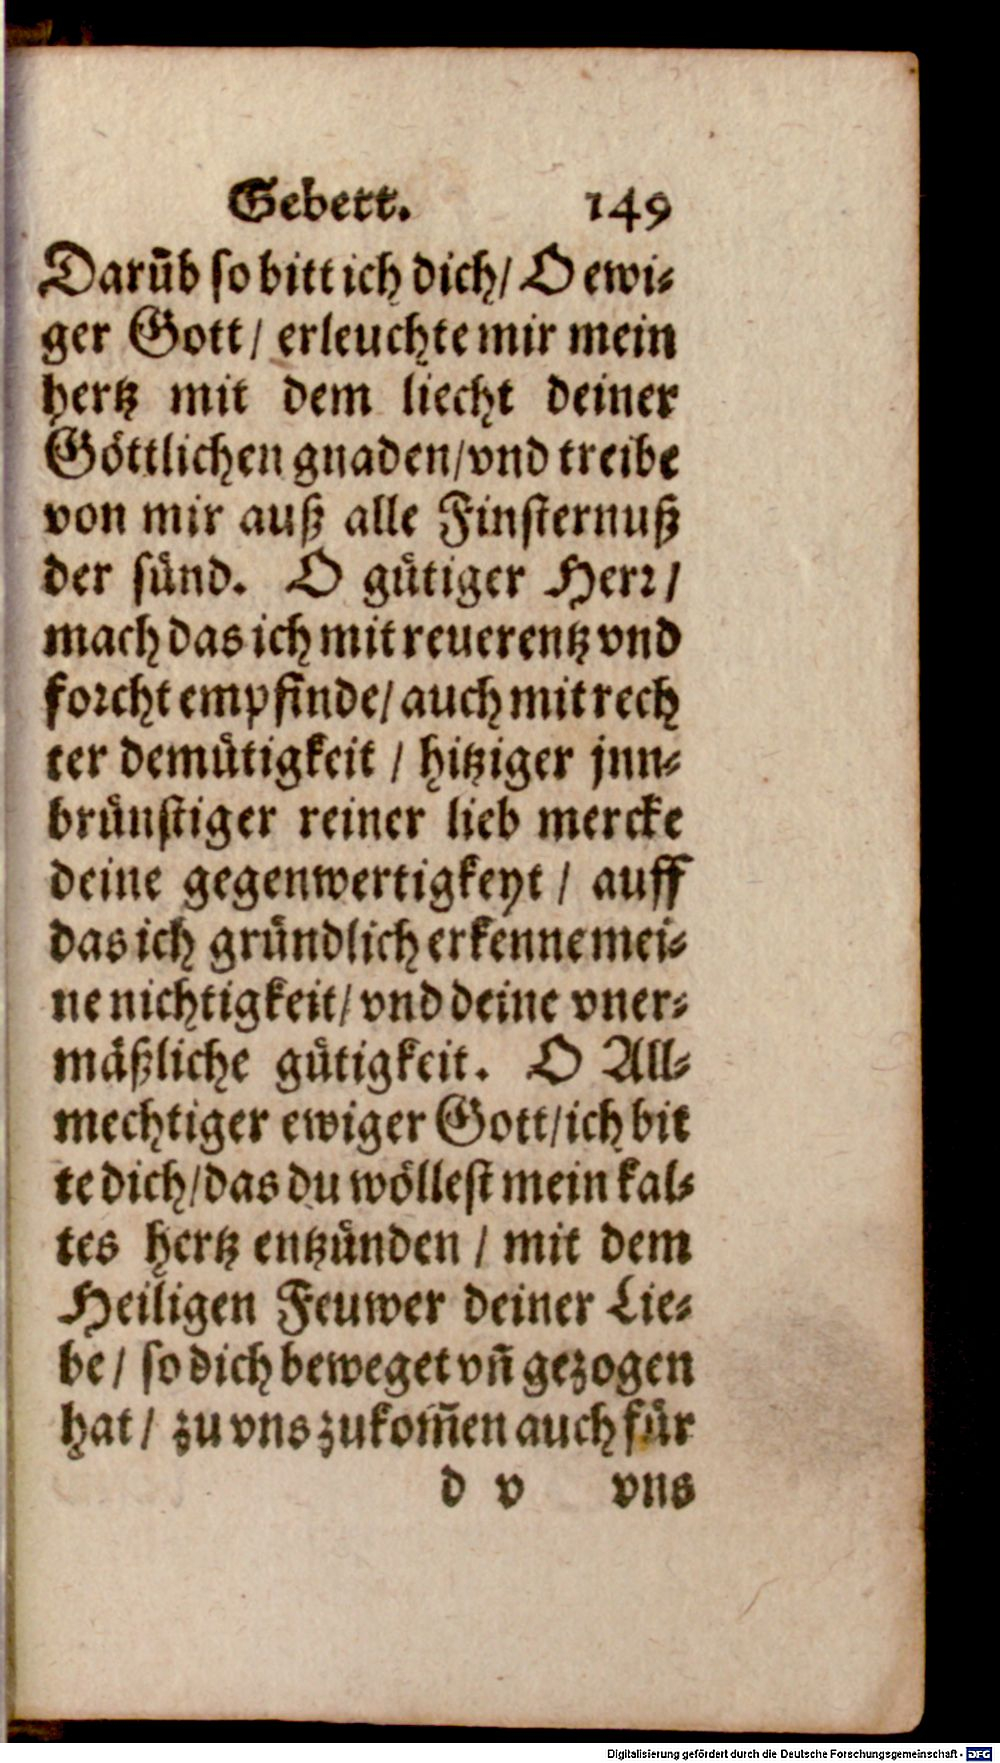 Gebett. 149
Darũb so bitt ich dich/ O ewi⸗
ger Gott/ erleuchte mir mein
hertz mit dem liecht deiner
Göttlichen gnaden/vnd treibe
von mir auß alle Finsternuß
der sünd. O gütiger Herr/
mach das ich mit reuerentz vnd
forcht empfinde/ auch mit rech
ter demütigkeit / hitziger jnn⸗
brünstiger reiner lieb mercke
deine gegenwertigkeyt / auff
das ich gründlich erkenne mei⸗
ne nichtigkeit/ vnd deine vner⸗
mäßliche gütigkeit. O All⸗
mechtiger ewiger Gott/ich bit
te dich/das du wöllest mein kal⸗
tes hertz entzünden / mit dem
Heiligen Feuwer deiner Lie⸗
be/ so dich beweget vñ gezogen
hat/ zu vns zukom̃en auch für
d v vns
Digitalisierung gefördert durch die Deutsche Forschungsgemeinschaft - DFG